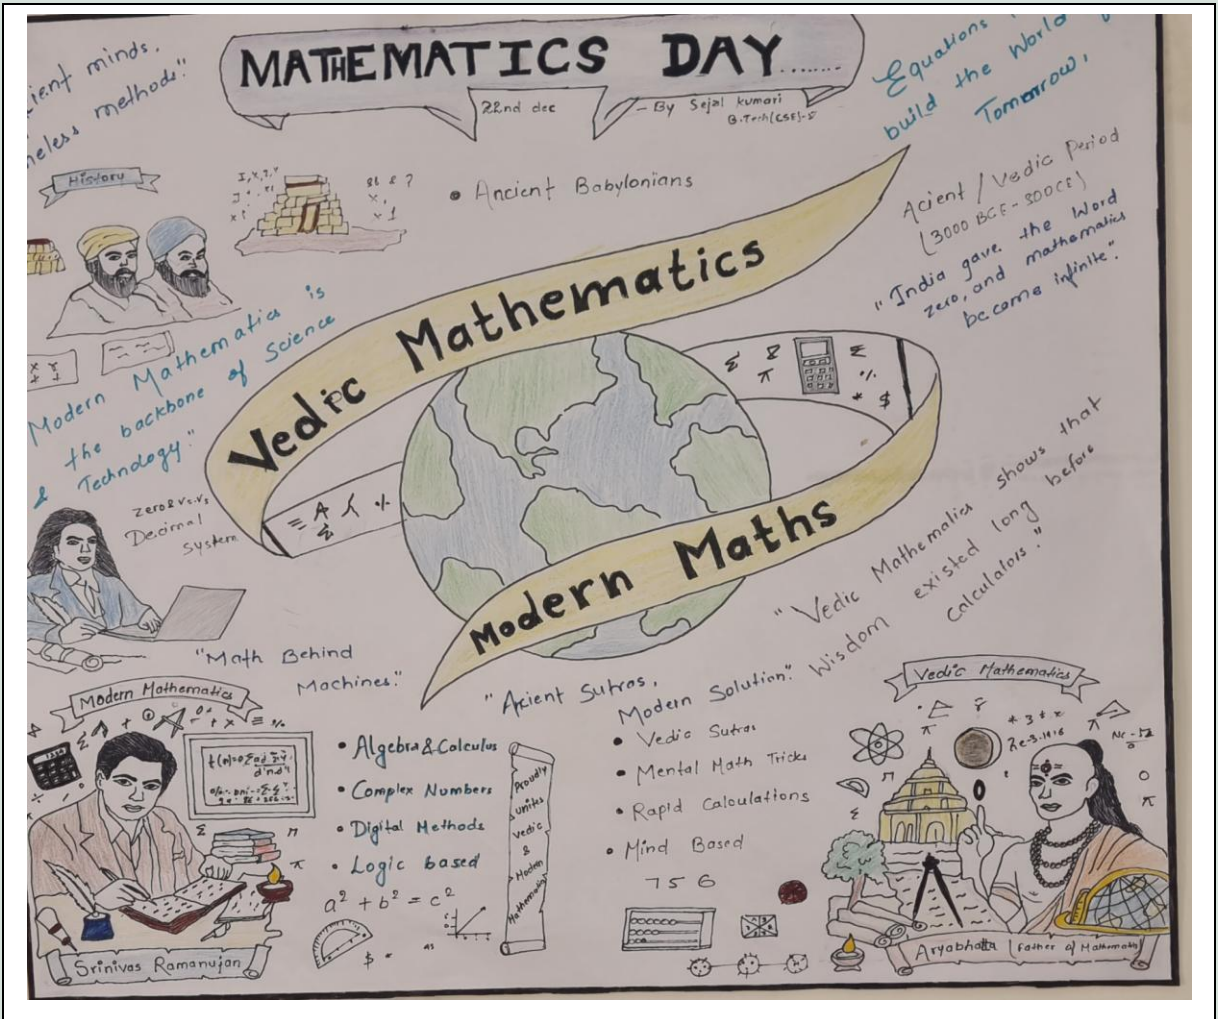 MATHEMATICS DAY.......
22nd dec
- By Sejal Kumari
B.Tech(CSE)-
minds.
methods"
Equations
build the World
Tomorrow,
History
• Ancient Babylonians
Acient / Vedic Period
(3000 BCE - 300CE)
"India gave the Word
zero, and mathematics
become infinite".
Vedic Mathematics
Modern Mathematics is
the backbone of Science
& Technology."
Decimal
System
Modern Maths
"Vedic Mathematics shows that
Wisdom existed long before
calculators."
"Math Behind
Machines."
"Acient Sutras,
Modern Solution."
Modern Mathematics
• Algebra & Calculus
• Complex Numbers
• Digital Methods
• Logic based
a² + b² = c²
Proudly
unites
Vedic
&
Modern
Mathematics
• Vedic Sutras
• Mental Math Tricks
• Rapid Calculations
• Mind Based
7 5 6
Vedic Mathematics
Srinivas Ramanujan
Aryabhatta (Father of Mathematics